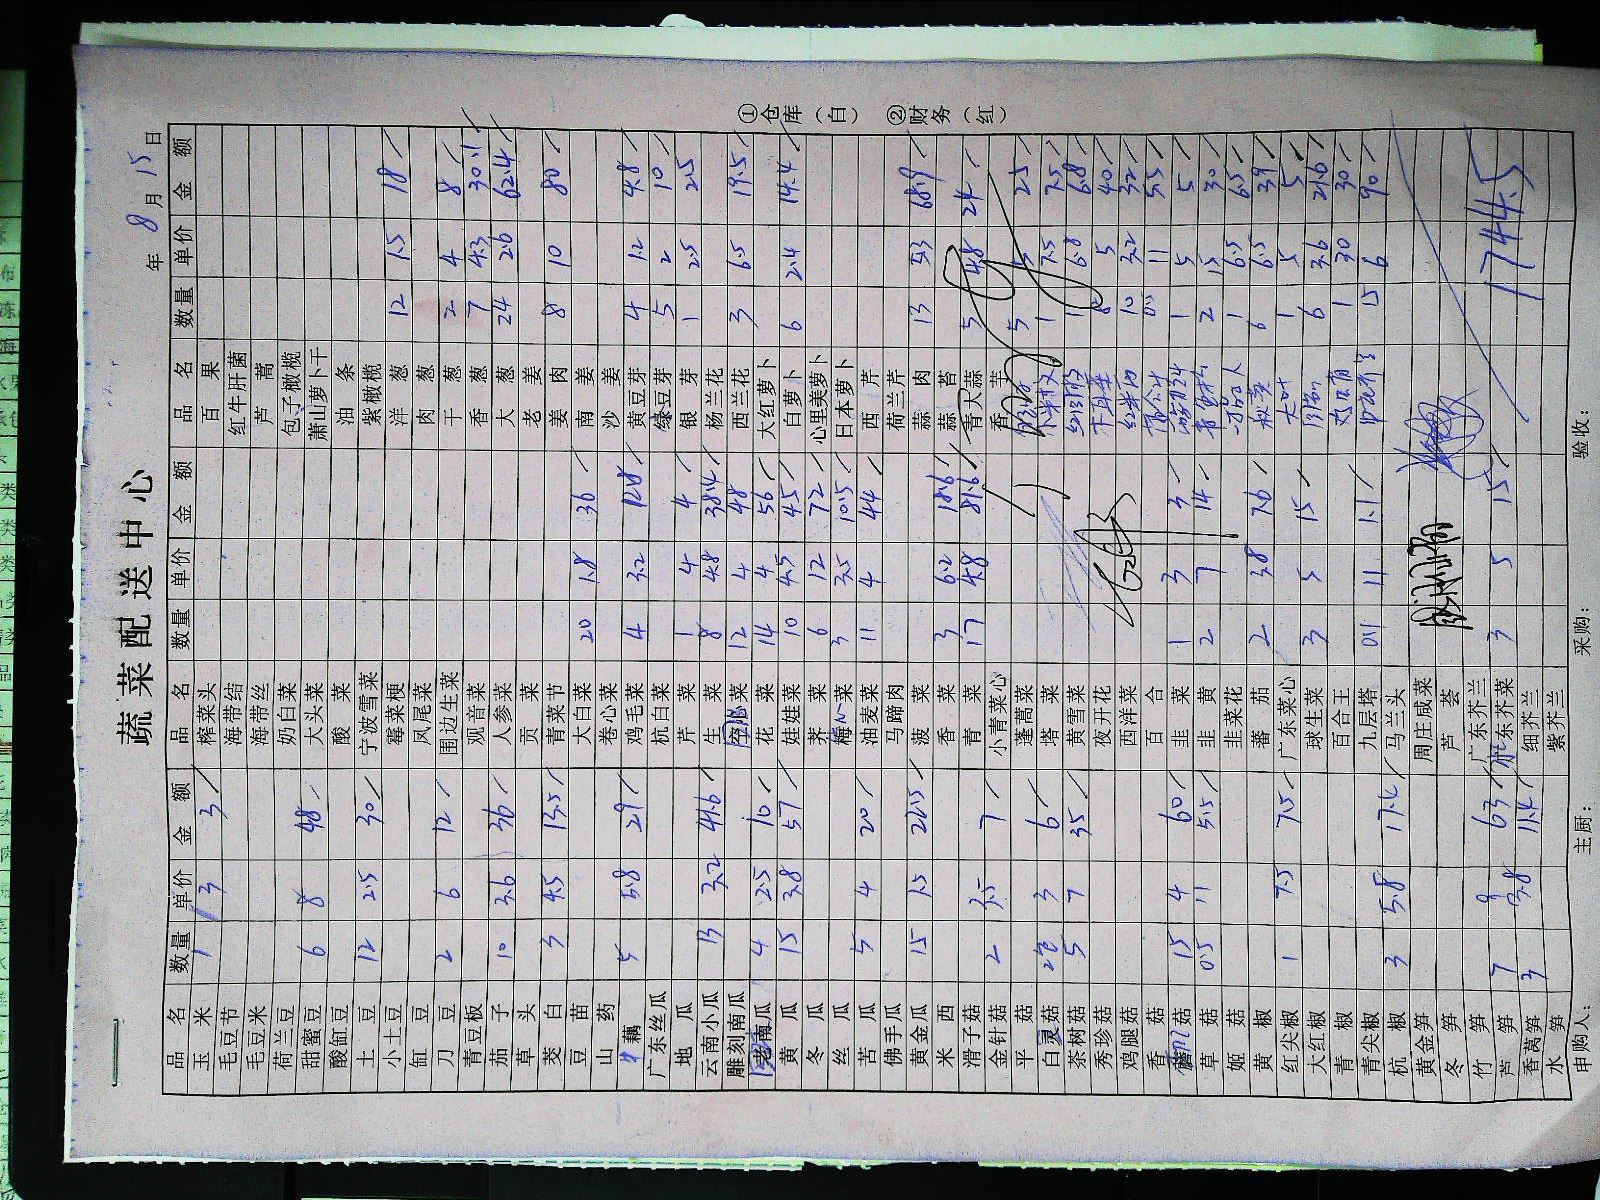 蔬菜配送中心
年 8 月 15 日
品名 数量 单价 金额 品名 数量 单价 金额 品名 数量 单价 金额
玉米 1 3 3 榨菜头 百果
毛豆节 海带结 红牛肝菌
毛豆米 海带丝 芦蒿
荷兰豆 奶白菜 包子橄榄
甜蜜豆 6 8 48 大头菜 萧山萝卜干
酸缸豆 酸菜 油条
土豆 12 2.5 30 宁波雪菜 紫橄榄
小土豆 霉菜梗 洋葱 12 1.5 18
缸豆 凤尾菜 肉葱
刀豆 2 6 12 围边生菜 干葱 2 4 8
青豆板 观音菜 香葱 7 4.3 30.1
茄子 10 3.6 36 人参菜 大葱 24 2.6 62.4
草头 贡菜 老姜
茭白 3 4.5 13.5 青菜节 姜肉 8 10 80
豆苗 大白菜 20 1.8 36 南姜
山药 卷心菜 沙姜
藕 5 5.8 29 鸡毛菜 4 3.2 12.8 黄豆芽 4 1.2 4.8
广东丝瓜 杭白菜 绿豆芽 5 2 10
地瓜 芹菜 1 4 4 银芽 1 2.5 2.5
云南小瓜 13 3.2 41.6 生菜 8 4.8 38.4 杨兰花
雕刻南瓜 空心菜 12 4 48 西兰花 3 6.5 19.5
老南瓜 4 2.5 10 花菜 14 4 56 大红萝卜
黄瓜 15 3.8 57 娃娃菜 10 4.5 45 白萝卜 6 2.4 14.4
冬瓜 荠菜 6 12 72 心里美萝卜
丝瓜 菜 3 3.5 10.5 日本萝卜
苦瓜 5 4 20 油麦菜 11 4 44 西芹
佛手瓜 马蹄肉 荷兰芹
黄金瓜 15 1.5 22.5 菠菜 蒜肉 13 5.3 68.9
米西 香菜 3 6.2 18.6 蒜苔
滑子菇 青菜 17 4.8 81.6 青大蒜 5 4.8 24
金针菇 2 3.5 7 小青菜心 香芋
平菇 蓬蒿菜 5 5 25
白灵菇 2包 3 6 塔菜 1 7.5 7.5
茶树菇 5 7 35 黄雪菜 1 6.8 6.8
秀珍菇 夜开花 8 5 40
鸡腿菇 西洋菜 10 3.2 32
香菇 百合 0.5 11 5.5
菇 15 4 60 韭菜 1 3 3 1 5 5
草菇 0.5 11 5.5 韭黄 2 7 14 2 15 30
姬菇 韭菜花 1 6.5 6.5
黄椒 蕃茄 2 3.8 7.6 6 6.5 39
红尖椒 1 7.5 7.5 广东菜心 1 5 5
大红椒 球生菜 3 5 15 6 3.6 21.6
青椒 百合王 1 30 30
青尖椒 九层塔 0.1 11 1.1 15 6 90
杭椒 3 5.8 17.4 马兰头
黄金笋 周庄咸菜
冬笋 芦荟
竹笋 7 9 63 广东芥兰
芦笋 3 3.8 11.4 广东芥菜 3 5 15 1744.5
香莴笋 细芥兰
水笋 紫芥兰
申购人： 主厨： 采购： 验收：
①仓库（白） ②财务（红）